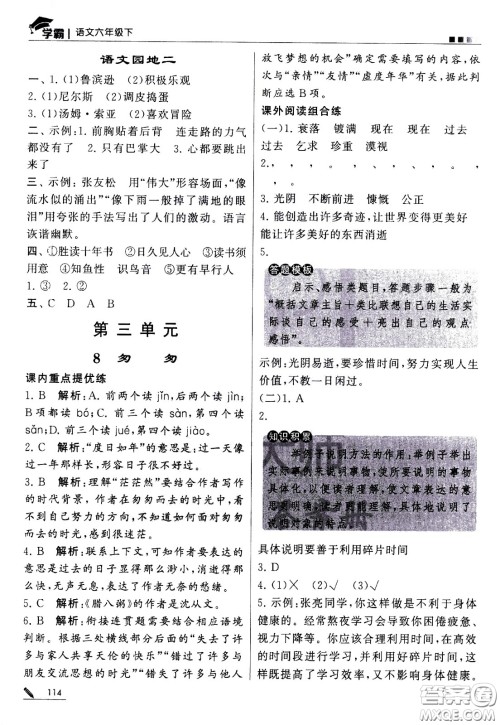 学霸 | 语文六年级下
语文园地二
一、1. (1)鲁滨逊 (2)积极乐观
2. (1)尼尔斯 (2)调皮捣蛋
3. (1)汤姆·索亚 (2)喜欢冒险
二、示例:1. 前胸贴着后背 连走路的力气
都没有了 2. 只有巴掌大 几步就能走
个来回
三、示例:张友松 用“伟大”形容场面,“像
流水似的涌出”“像下雨一般洒满了她的眼
泪”用夸张的手法写出了人们的激动。语言
诙谐幽默。
四、①胜读十年书 ②日久见人心 ③读书须
用意 ④知鱼性 识鸟音 ⑤早行人
2. ③①②
五、C D A B
第三单元
8 匆 匆
课内重点提优练
1. B 解析:A. 前两个读 jǐn,后两个读 jìn;
B项都读 bó;C. 前三个读 sàn,第四个读
sǎn。
2. C 解析:“度日如年”的意思是:过一天像
过一年那样长,形容日子很不好过。
3. B 解析:理解“茫茫然”要结合作者写作
的时代背景,作者在匆匆而去的时光中,
感到怅然若失。
4. B 解析:联系上下文,可知作者要表达的
意思是自己日子显得那么渺小,悄无声
息,无声无息。表达了作者无奈的愁绪。
5. C 解析:《腊八粥》的作者是沈从文。
6. B 解析:衔接连贯类题目要结合语境进行
判断。结合三处横线部分后的“失去了许
多与家人共享天伦的快乐”“错过了许多与
朋友交流思想的机会”“错失了许多自我
114
放飞梦想的机会”,可知对应的内容分别与
“亲情”“友情”“虚度年华”有关。据此可
判断应选B项。
课外阅读组合练
(一)1. 衰落 镀满 现在 现在 过去
过去 乞求 珍重 漠视
3. 光阴 不断前进 慷慨 公正
4. 能创造出许多奇迹,让世界变得更美好
能让许多美好的东西消逝
5.
答题模板
启示、感悟类题目,答题步骤一般为
“概括文章主旨+类比联想自己的生活
实际谈自己的感受+亮出自己的观点
感悟”。
示例:光阴易逝,要珍惜时间,努力实现人生
价值,不教一日闲过。
(二)1. A
2.
知识积累
举例子说明方法的作用:举例子举出
实际事例来说明事物,使所要说明的事物
具体化,以便读者理解。使文章表达的意
思更明确,具体地突出地说明了
说明对象的特点。
具体说明要善于利用碎片时间
3. D
4. (1)√ (2)× (3)√
5. 示例:张亮同学,你这样利用时间是不利于身体
健康的。经常熬夜会导致你困倦疲惫、
视力下降等。你应该劳逸结合,
这样既提高了学习效率,又有益于身体健康。